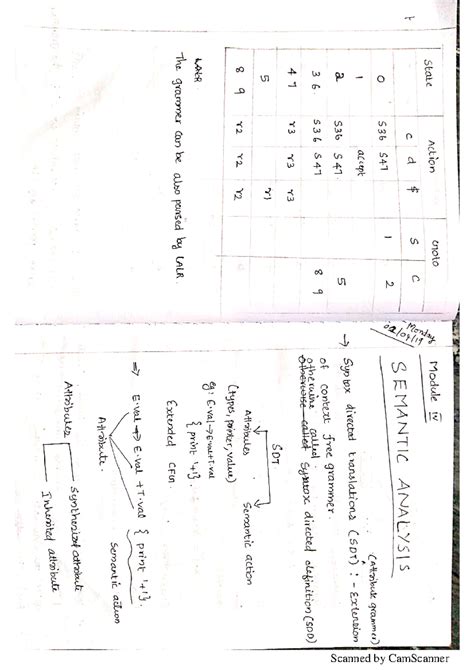 State Action Goto
c d $ S C
0 S36 S47 1 2
1 accept
2 S36 S47 5
36 S36 S47 89
47 r3 r3 r3
5 r1
89 r2 r2 r2
LALR
The grammer can be also parsed by LALR.
Monday
02/04/19
Module IV
SEMANTIC ANALYSIS
(Attribute grammer)
→ Syntax directed translations (SDT) :- Extension
of context free grammer.
otherwise called
otherwise called Syntax directed definition (SDD)
SDT
Attributes Semantic action
(types, printer, value)
eg: E.val→E.val+T.val
{ print '+' }
Extended CFG.
⇒ E.val → E.val + T.val { print '+' }.
Attribute. semantic action
Attributes
Attributes Synthesized attribute
Inherited attribute
Scanned by CamScanner